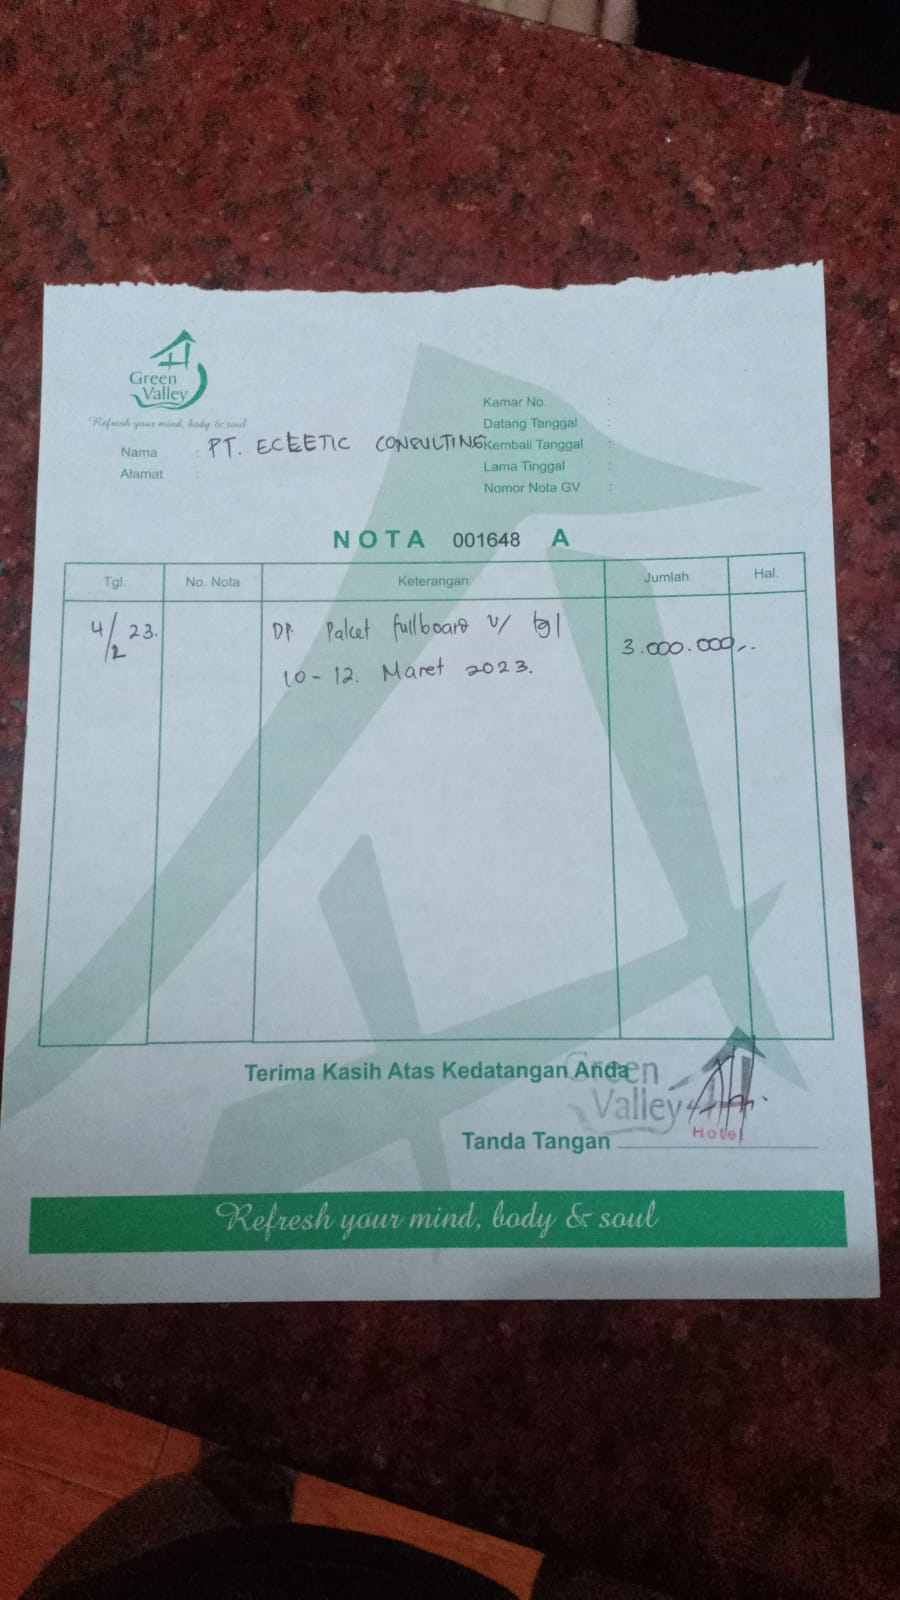 Green
Valley
Refresh your mind, body & soul
Kamar No. :
Datang Tanggal :
Nama : PT. ECLETIC CONSULTING Kembali Tanggal :
Alamat : Lama Tinggal :
Nomor Nota GV :
NOTA 001648 A
Tgl. No. Nota Keterangan Jumlah Hal.
4/2 23. DP. Paket fullboard u/ tgl 3.000.000,-.
10 - 12. Maret 2023.
Terima Kasih Atas Kedatangan Anda
Green
Valley
Hotel
Tanda Tangan
Refresh your mind, body & soul